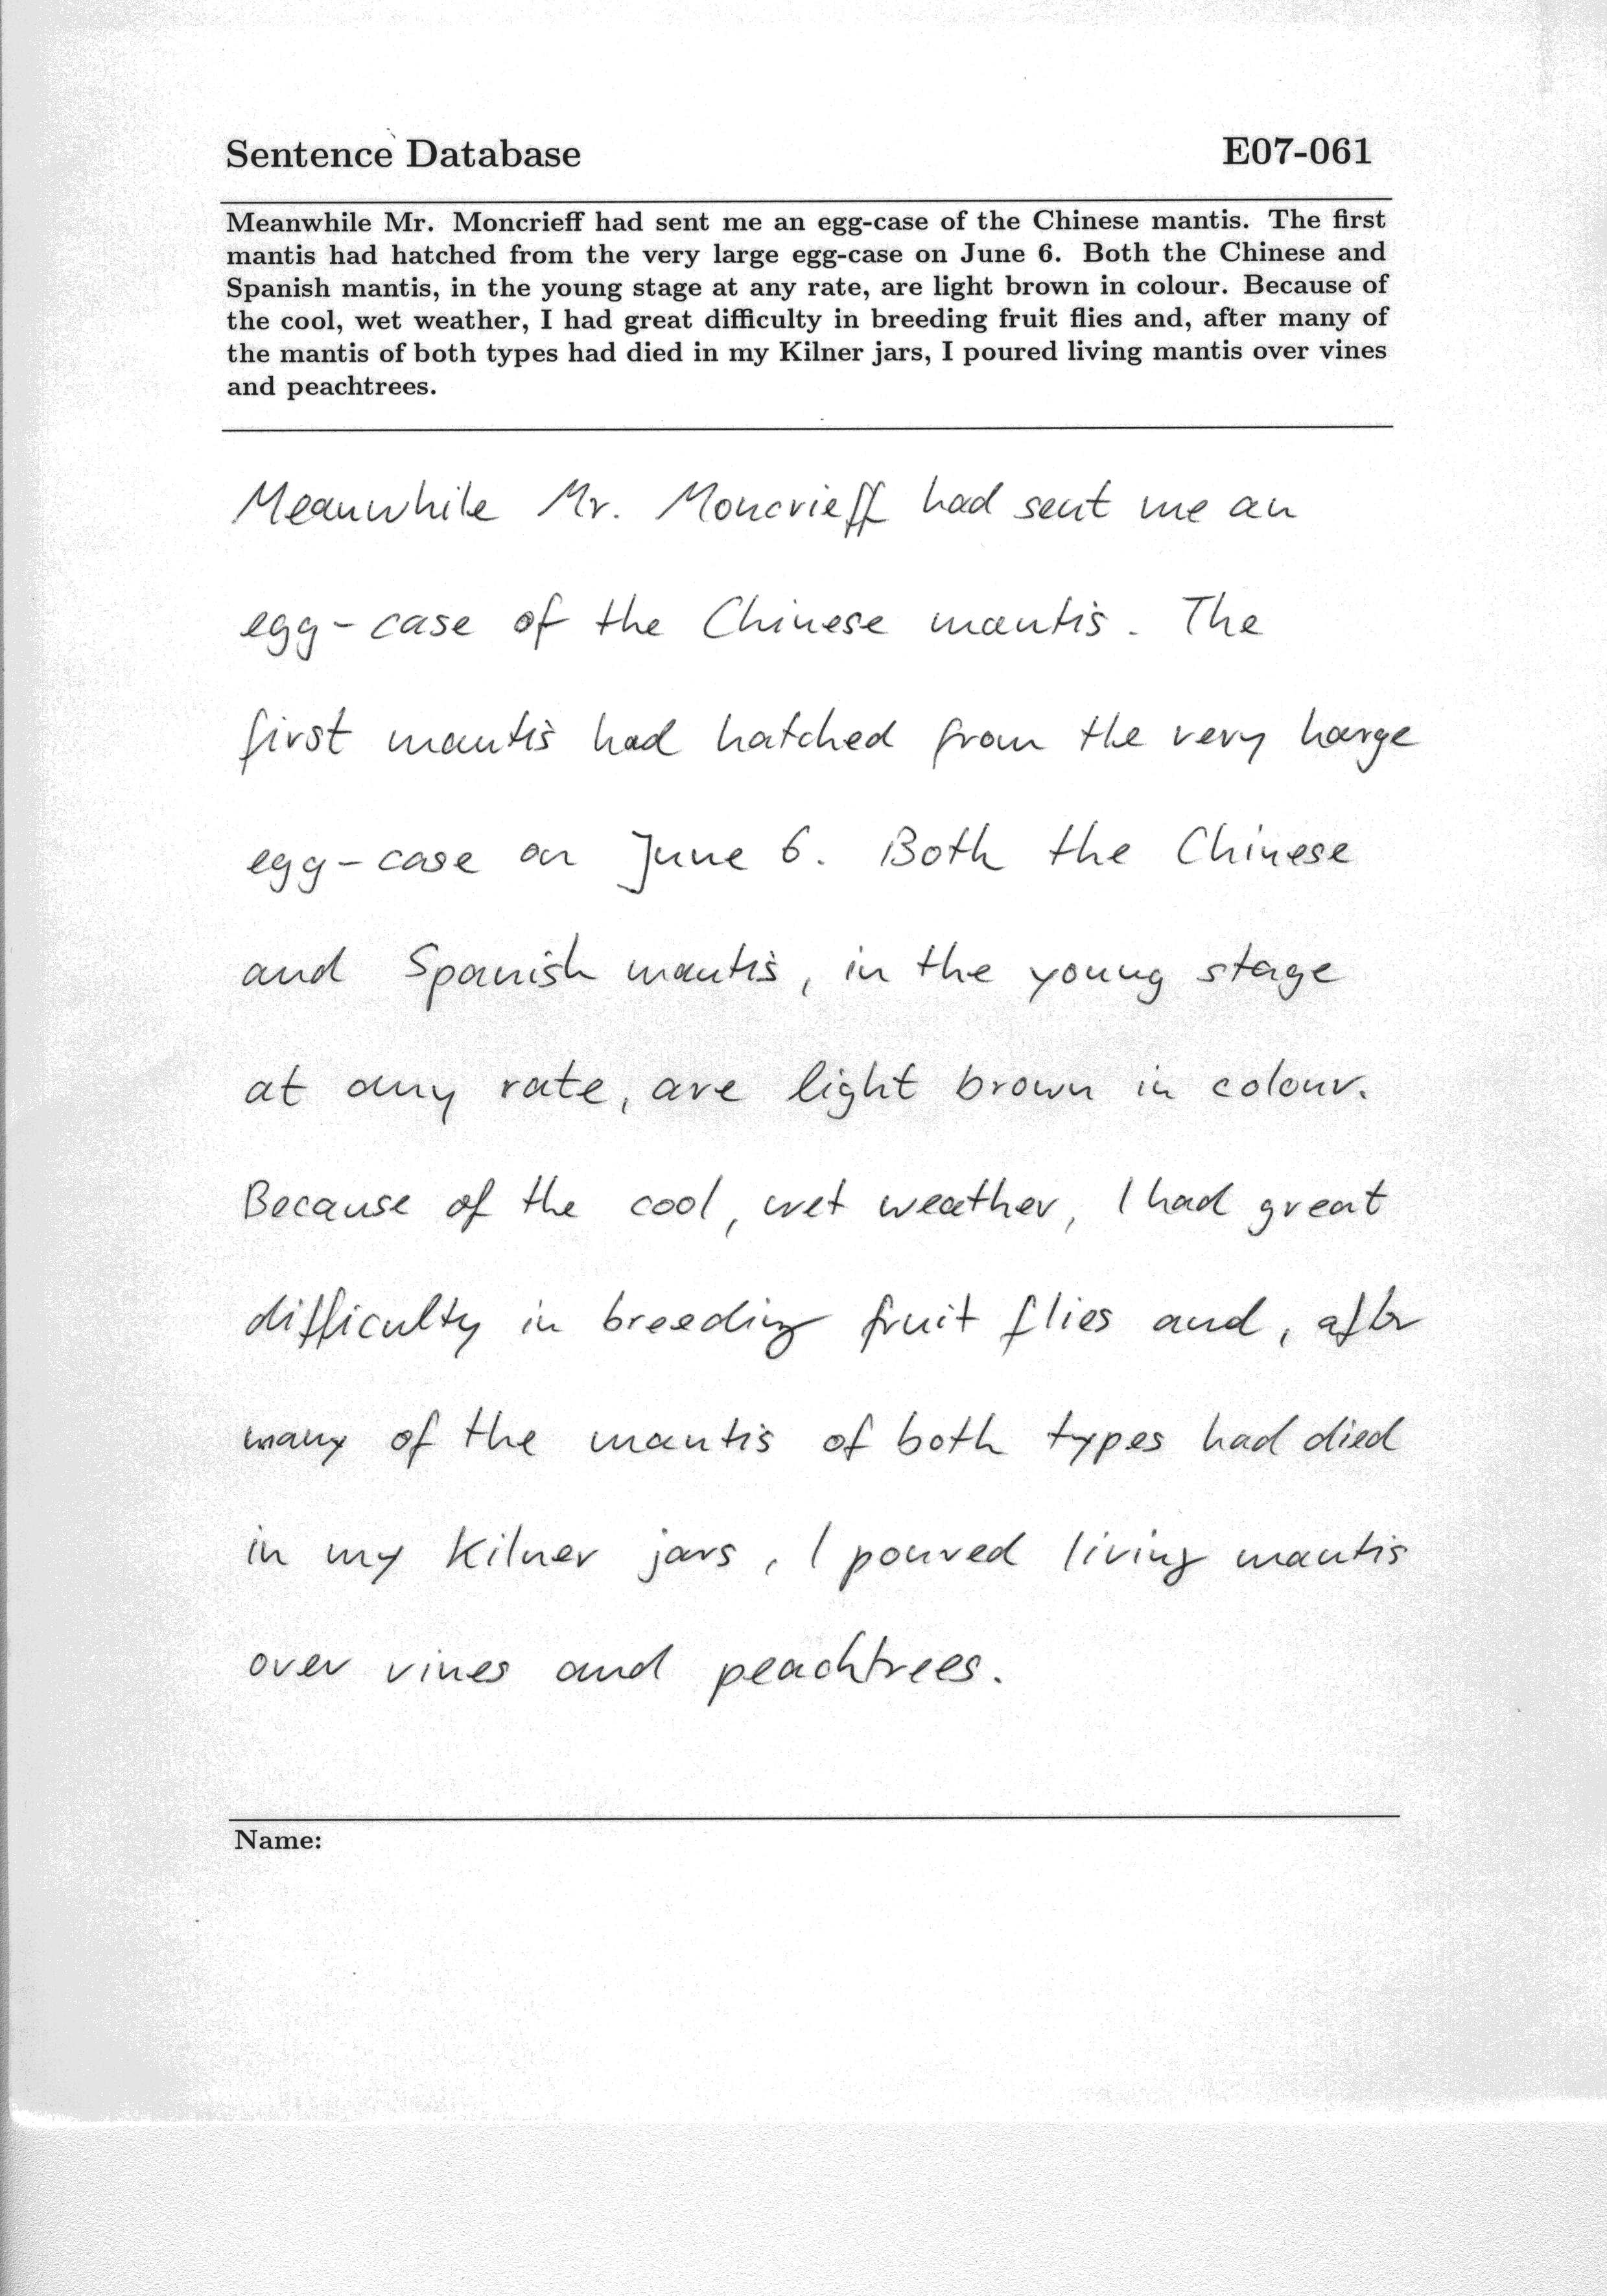 Sentence Database E07-061
Meanwhile Mr. Moncrieff had sent me an egg-case of the Chinese mantis. The first
mantis had hatched from the very large egg-case on June 6. Both the Chinese and
Spanish mantis, in the young stage at any rate, are light brown in colour. Because of
the cool, wet weather, I had great difficulty in breeding fruit flies and, after many of
the mantis of both types had died in my Kilner jars, I poured living mantis over vines
and peachtrees.
Meanwhile Mr. Moncrieff had sent me an
egg-case of the Chinese mantis. The
first mantis had hatched from the very large
egg-case on June 6. Both the Chinese
and Spanish mantis, in the young stage
at any rate, are light brown in colour.
Because of the cool, wet weather, I had great
difficulty in breeding fruit flies and, after
many of the mantis of both types had died
in my Kilner jars, I poured living mantis
over vines and peachtrees.
Name: